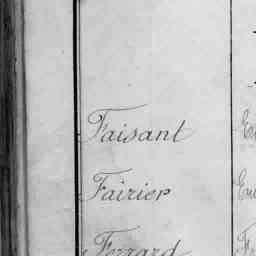 Faisant
Fairier
Ferrard